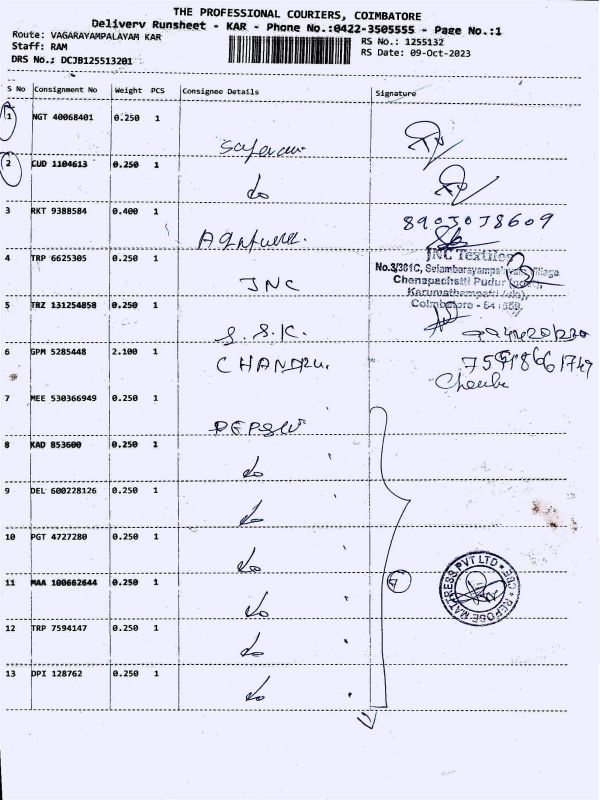 THE PROFESSIONAL COURIERS, COIMBATORE
Delivery Runsheet - KAR - Phone No.:0422-3505555 - Page No.:1
Route: VAGARAYAMPALAYAM KAR
RS No.: 1255132
Staff: RAM
RS Date: 09-Oct-2023
DRS No.: DCJB125513201
S No Consignment No Weight PCS Consignee Details Signature
1 NGT 40068401 0.250 1
2 CUD 1104613 0.250 1 do
3 RKT 9388584 0.400 1
8903038609
4 TRP 6625305 0.250 1 JNC
JNC Textiles
No.3/361C, Selambarayampalayam Village
Chenapachetti Pudur
Karumathampatti (via),
Coimbatore - 641 659.
5 TRZ 131254858 0.250 1 S.S.K.
6 GPM 5285448 2.100 1 CHANDRU.
7 MEE 530366949 0.250 1
8 KAD 853600 0.250 1 do
9 DEL 600228126 0.250 1 do
10 PGT 4727280 0.250 1 do
11 MAA 100662644 0.250 1 do
12 TRP 7594147 0.250 1 do
13 DPI 128762 0.250 1 do
REPOSE MATTRESS PVT LTD * CBE *